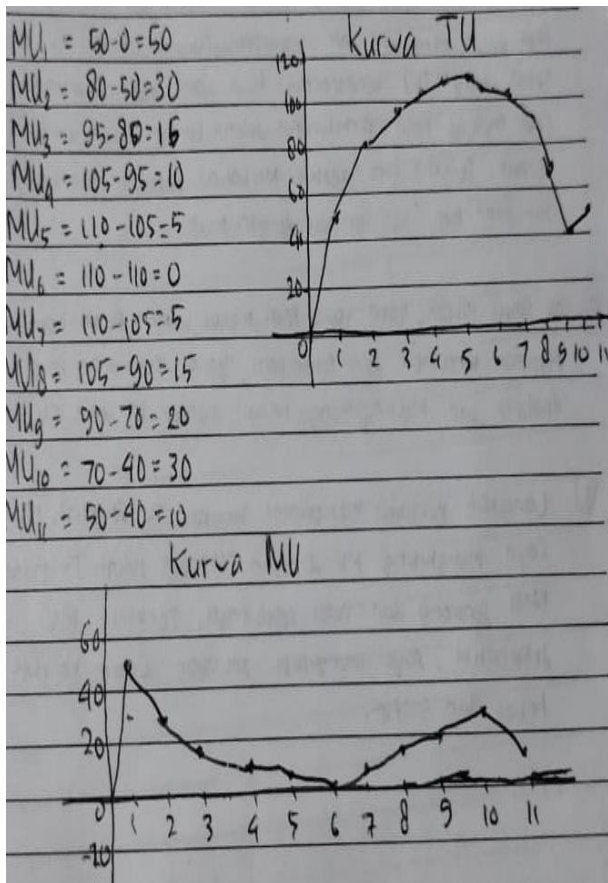 MU₁ = 50-0=50
MU₂ = 80-50=30
MU₃ = 95-80=15
MU₄ = 105-95=10
MU₅ = 110-105=5
MU₆ = 110-110=0
MU₇ = 110-105=5
MU₈ = 105-90=15
MU₉ = 90-70=20
MU₁₀ = 70-40=30
MU₁₁ = 50-40=10
Kurva TU
120
100
80
60
40
20
0 1 2 3 4 5 6 7 8 9 10 11
Kurva MU
60
40
20
0 1 2 3 4 5 6 7 8 9 10 11
-20